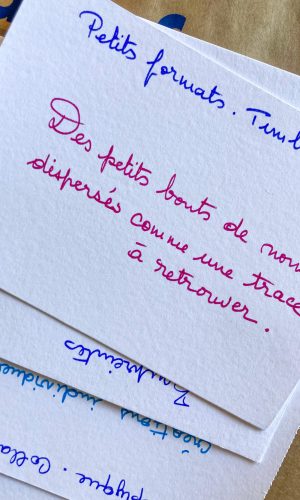 Petits formats. Timb
Des petits bouts de nou
dispersés comme une trace
à retrouver.
Empreintes
créations individue
pyque. Colla